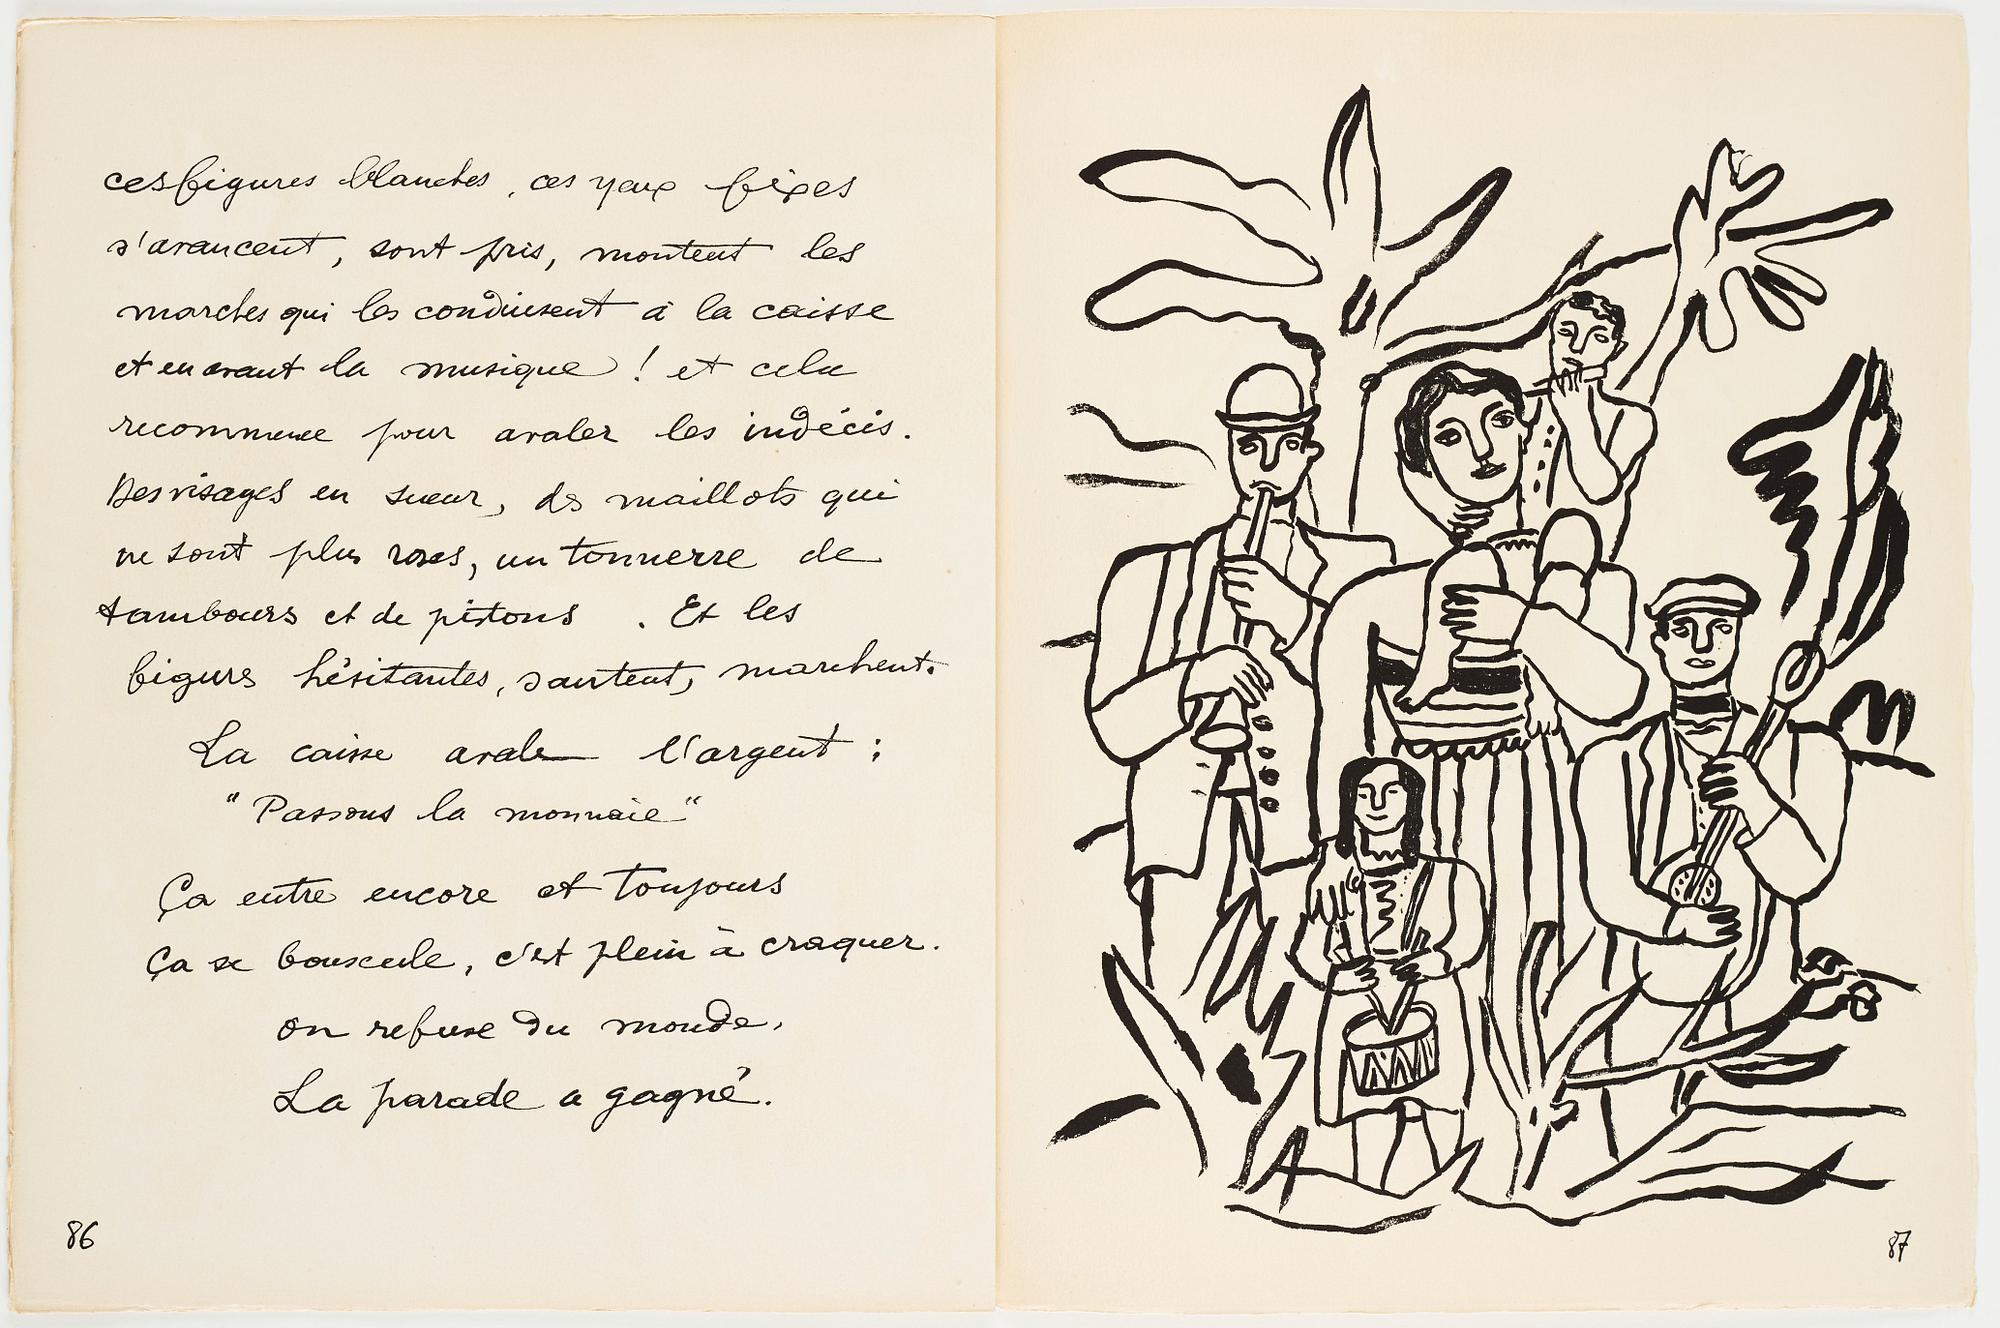 ces figures blanches, ces yeux fixes
s'avancent, sont pris, montent les
marches qui les conduisent à la caisse
et en avant la musique ! et cela
recommence pour avaler les indécis.
Des visages en sueur, des maillots qui
ne sont plus roses, un tonnerre de
tambours et de pistons . Et les
figures hésitantes, sautent, marchent.
La caisse avale l'argent :
"Passons la monnaie"
Ça entre encore et toujours
Ça se bouscule, c'est plein à craquer.
on refuse du monde.
La parade a gagné.
86
87